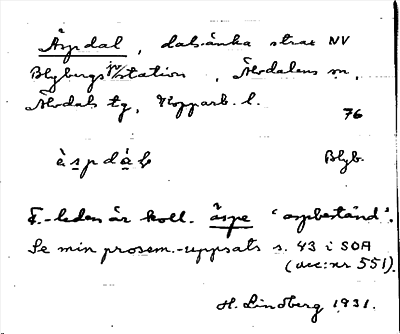 Äspdal, dalsänka strax NV
Blybergs jvstation, Älvdalens sn,
Älvdals tg, Kopparb. l.
76
ὲspdàḷ Blyb.
F.-leden är koll. äspe 'aspbestånd'.
Se min prosem.-uppsats s. 43 i SOA
(acc:nr 551).
H. Lindberg 1931.